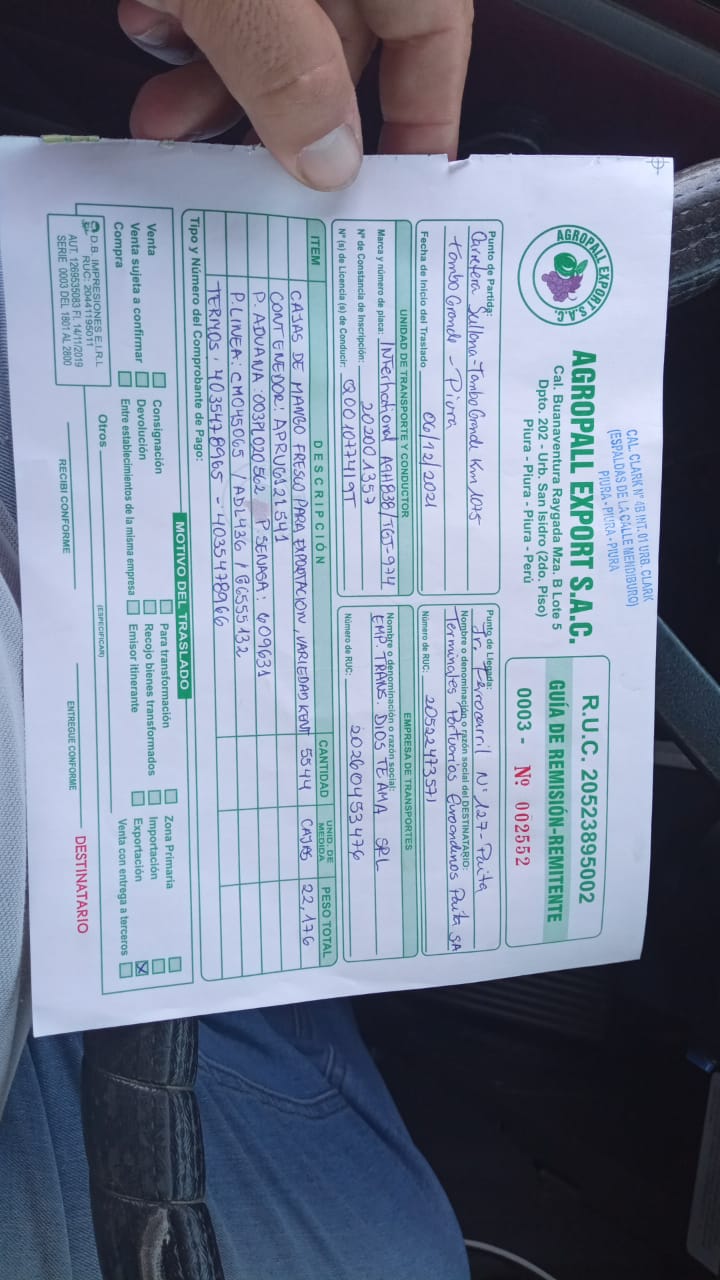 CAL. CLARK N° 4B INT. 01 URB. CLARK
(ESPALDAS DE LA CALLE MENDIBURO)
PIURA - PIURA - PIURA
AGROPALL EXPORT S.A.C.
AGROPALL EXPORT S.A.C.
Cal. Buenaventura Raygada Mza. B Lote 5
Dpto. 202 - Urb. San Isidro (2do. Piso)
Piura - Piura - Piura - Perú
R.U.C. 20523895002
GUÍA DE REMISIÓN-REMITENTE
0003 - Nº 002552
Punto de Partida:
Carretera Sullana-TamboGrande Km 1075
TamboGrande - Piura
Fecha de Inicio del Traslado 06/12/2021
Punto de Llegada:
Jr. Ferrocarril N° 127 - Paita
Nombre o denominación o razón social del DESTINATARIO:
Terminales Portuarios Euroandinos Paita SA
Número de RUC: 20522473571
UNIDAD DE TRANSPORTE Y CONDUCTOR
Marca y número de placa: International A9H838/TGJ-974
Nº de Constancia de Inscripción: 202001357
Nº (s) de Licencia (s) de Conducir:
EMPRESA DE TRANSPORTES
Nombre o denominación o razón social:
EMP. TRANS. DIOS TE AMA SRL
Número de RUC: 20260453476
ITEM DESCRIPCIÓN CANTIDAD UNID. DE MEDIDA PESO TOTAL
CAJAS DE MANGO FRESCO PARA EXPORTACION, VARIEDAD KENT 5544 CAJAS 22,176
CONTENEDOR: APRU6121541
P. ADUANA: 0039020562 P SENASA: 609631
P. LINEA: CMO45065 / ASL436 / G6555132
TERMOS: 4035478965 - 4035478966
Tipo y Número del Comprobante de Pago:
MOTIVO DEL TRASLADO
Venta
Venta sujeta a confirmar
Compra
Consignación
Devolución
Entre establecimientos de la misma empresa
Para transformación
Recojo bienes transformados
Emisor itinerante
Zona Primaria
Importación
Exportación X
Venta con entrega a terceros
Otros
(ESPECIFICAR)
D.B. IMPRESIONES E.I.R.L
RUC: 20441195011
AUT. 1269535083 FI. 14/11/2019
SERIE 0003 DEL 1801 AL 2800
RECIBI CONFORME
ENTREGUE CONFORME
DESTINATARIO